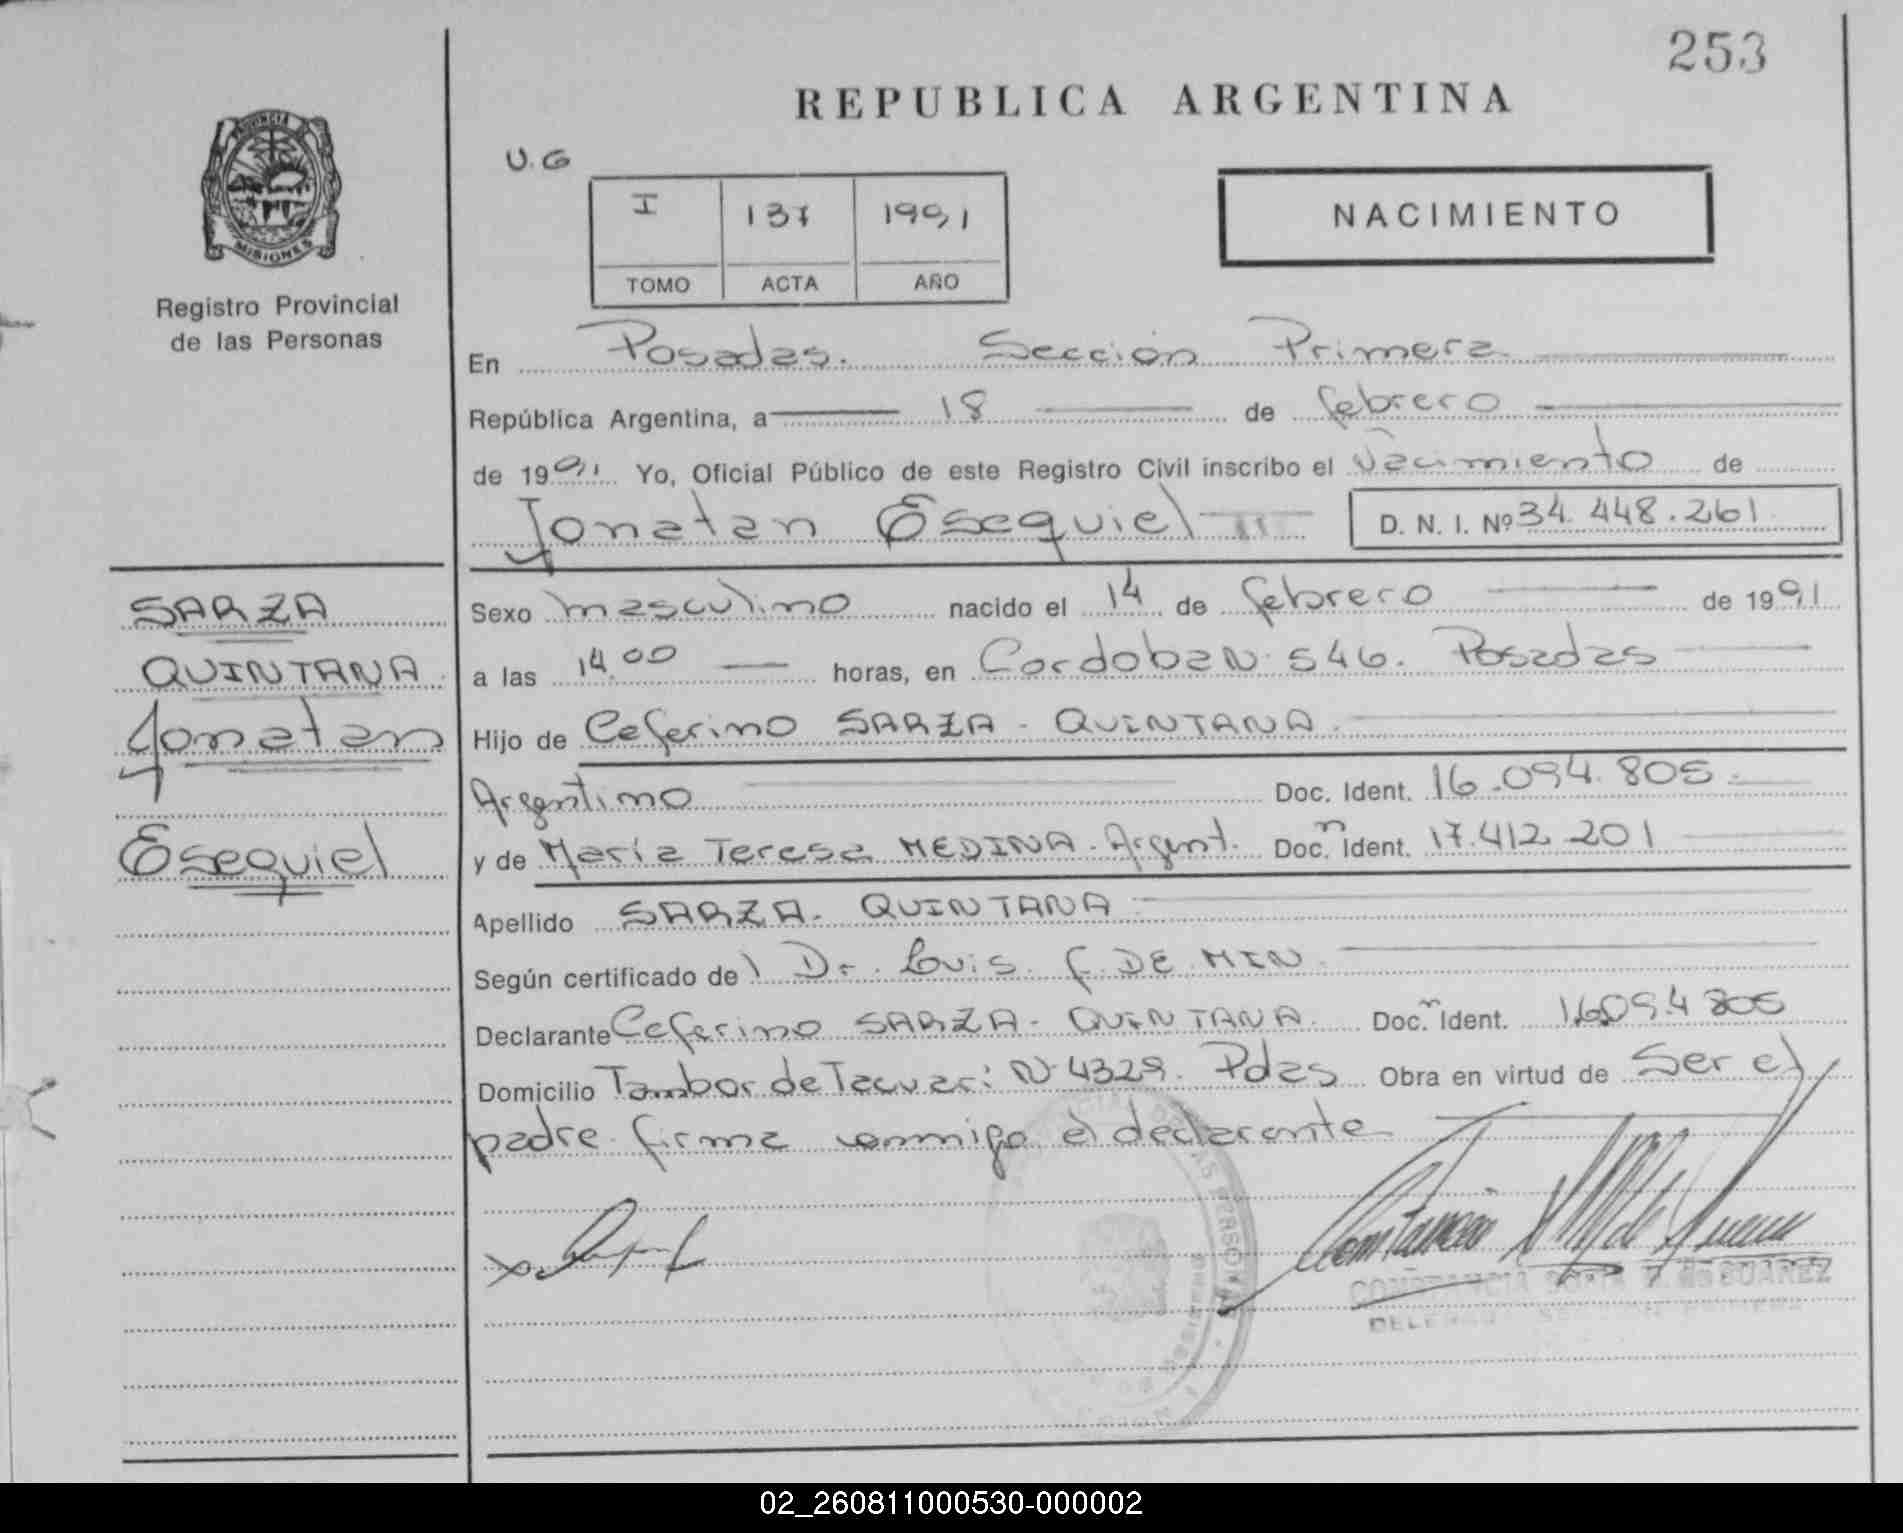 253
REPUBLICA ARGENTINA
U.G
PROVINCIA DE
MISIONES
Registro Provincial
de las Personas
I 137 1991
TOMO ACTA AÑO
NACIMIENTO
En Posadas. Sección Primera
República Argentina, a 18 de febrero
de 1991 Yo, Oficial Público de este Registro Civil inscribo el Nacimiento de
Jonatan Esequiel D. N. I. Nº 34.448.261
SARZA
QUINTANA
Jonatan
Esequiel
Sexo masculino nacido el 14 de febrero de 1991
a las 14.00 horas, en Cordoba N. 546. Posadas
Hijo de Ceferino SARZA - QUINTANA.
Argentino Doc. Ident. 16.094.805.
y de María Teresa MEDINA. Argent. Doc. n Ident. 17.412.201
Apellido SARZA. QUINTANA
Según certificado de Dr. Luis F. DE MIN
Declarante Ceferino SARZA - QUINTANA. Doc. n Ident. 16.094.805
Domicilio Tambor de Tacuari N. 4329. Pdas Obra en virtud de Ser el
padre. firma conmigo el declarante
CONSTANCIA SUAREZ
02_260811000530-000002